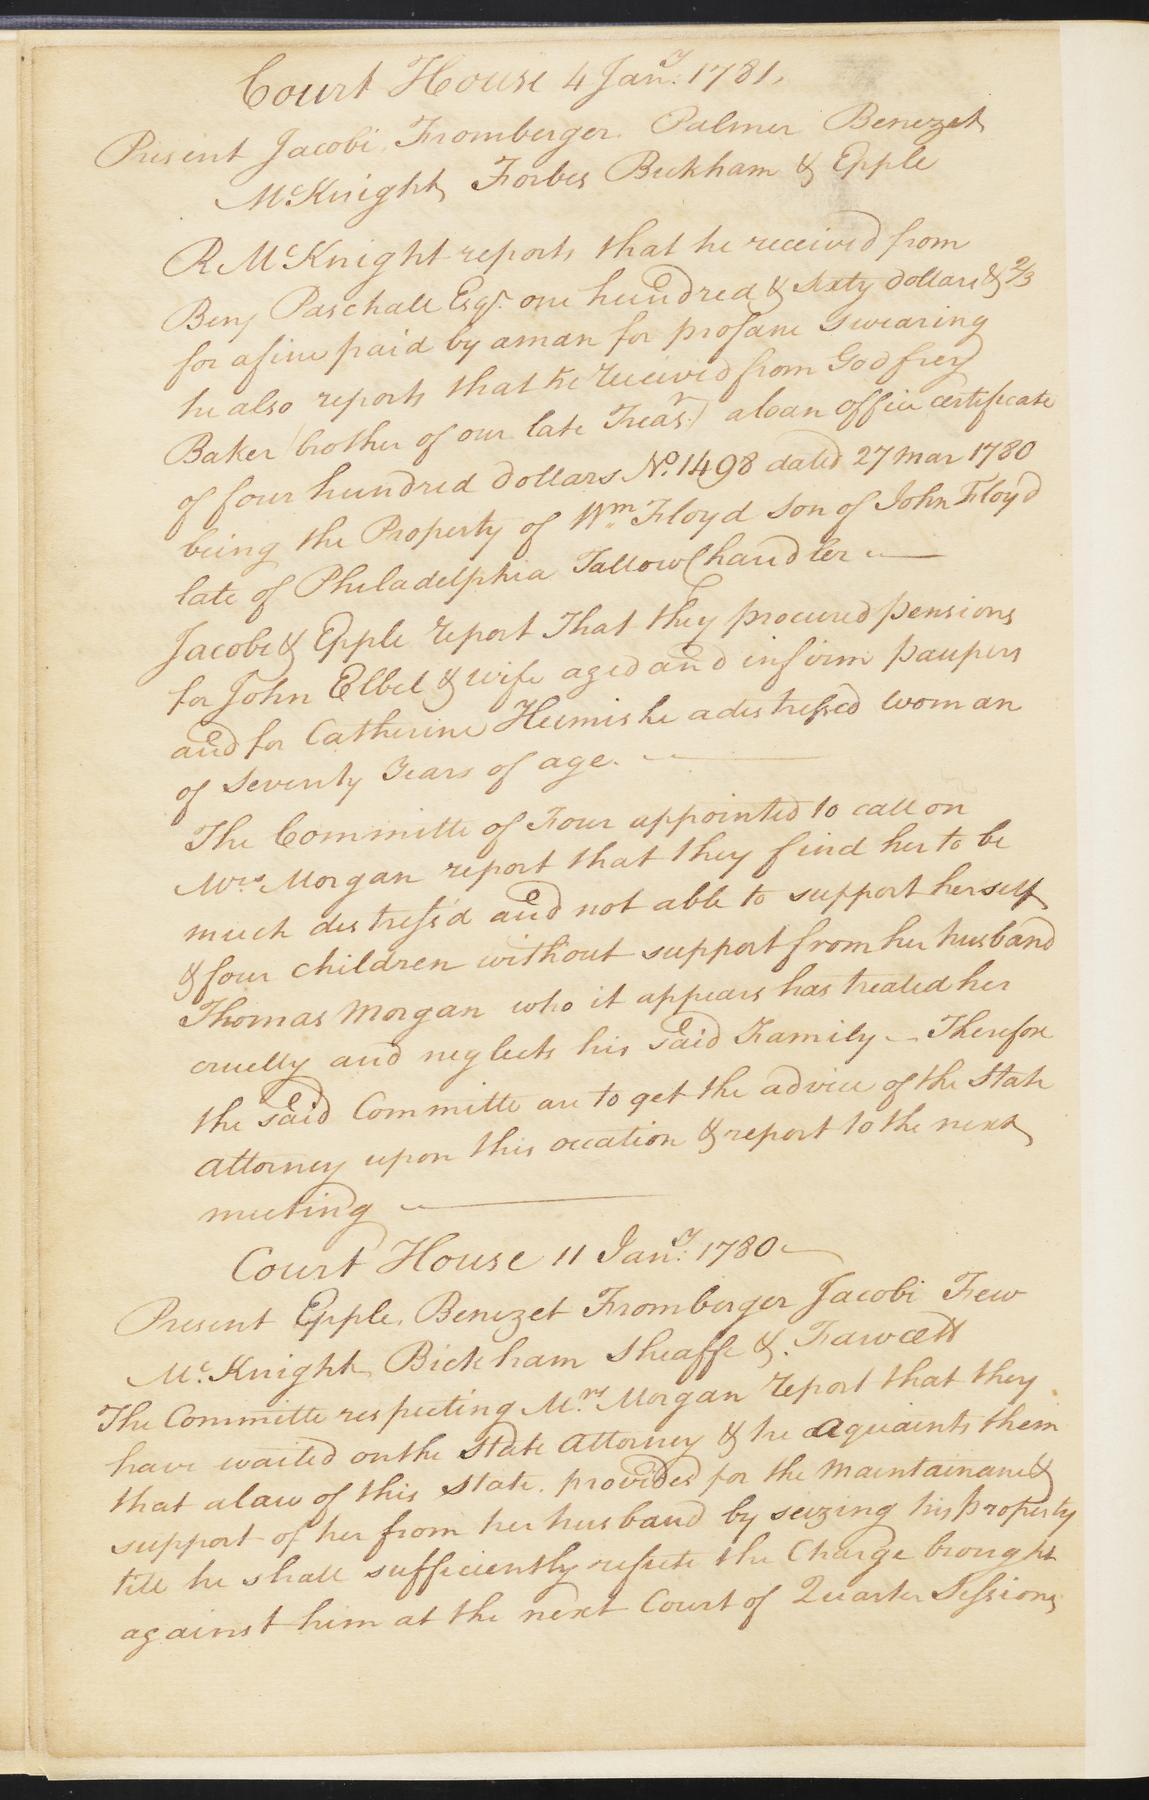 Court House 4 Jany. 1781.
Present Jacobi, Fromberger. Palmer Benezet
McKnight, Forbes Bickham & Epple
R McKnight reports that he received from
Benj Paschall Esqr. one hundred & sixty dollars & 2/3
for a fine paid by a man for profane swearing
he also reports that he received from Godfrey
Baker (brother of our late Treasr.) a loan office certificate
of four hundred dollars No. 1498 dated 27 Mar 1780
being the Property of Wm. Floyd son of John Floyd
late of Philadelphia Tallow Chandler —
Jacobi & Epple report That they procured pensions
for John Elbel & wife aged and infirm paupers
and for Catherine a distressed woman
of Seventy Years of age. —
The Committe of Four appointed to call on
Mrs. Morgan report that they find her to be
much distress'd and not able to support herself
& four children without support from her husband
Thomas Morgan who it appears has treated her
cruelly and neglects his said Family — Therefore
the said Committe are to get the advice of the State
Attorney upon this occation & report to the next
meeting —
Court House 11 Jany. 1780 —
Present Epple, Benezet Fromberger Jacobi Few
Mc.Knight, Bickham Sheaffe &. Fawcett
The Committe respecting Mrs. Morgan report that they
have waited on the State Attorney & he aquaints them
that a law of this State. provides for the maintainance &
support of her from her husband by seizing his property
till he shall sufficiently refute the Charge brought
against him at the next Court of Quarter Sessions